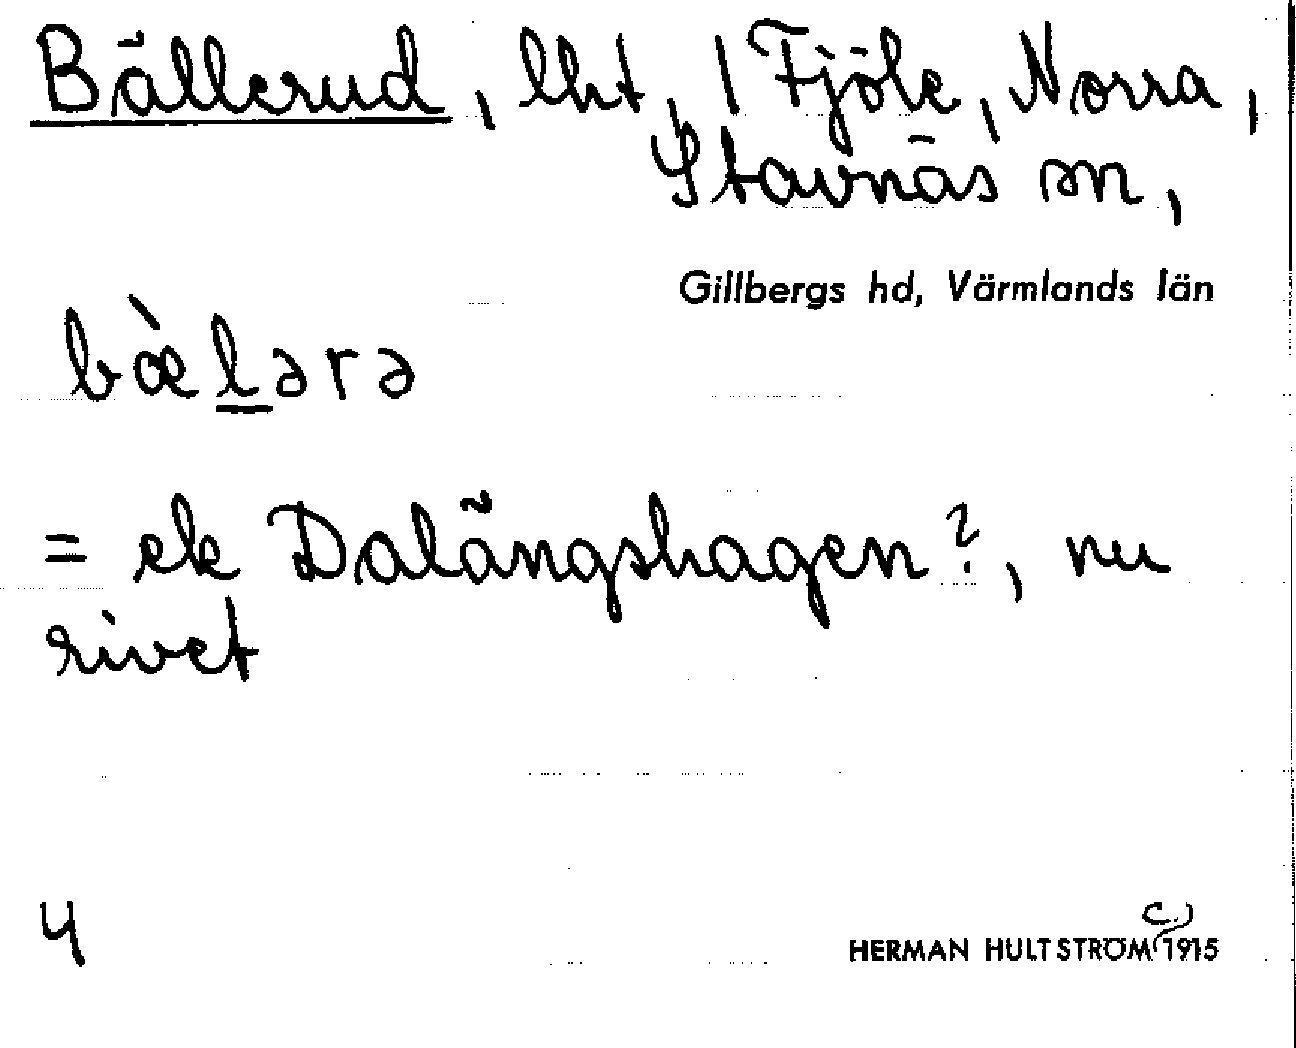 Bällerud, lht, 1 Fjöle, Norra,
Stavnäs sn,
Gillbergs hd, Värmlands län
bæ̀lərə
= ek Dalängshagen?, nu
rivet
4
c.)
HERMAN HULTSTRÖM 1915